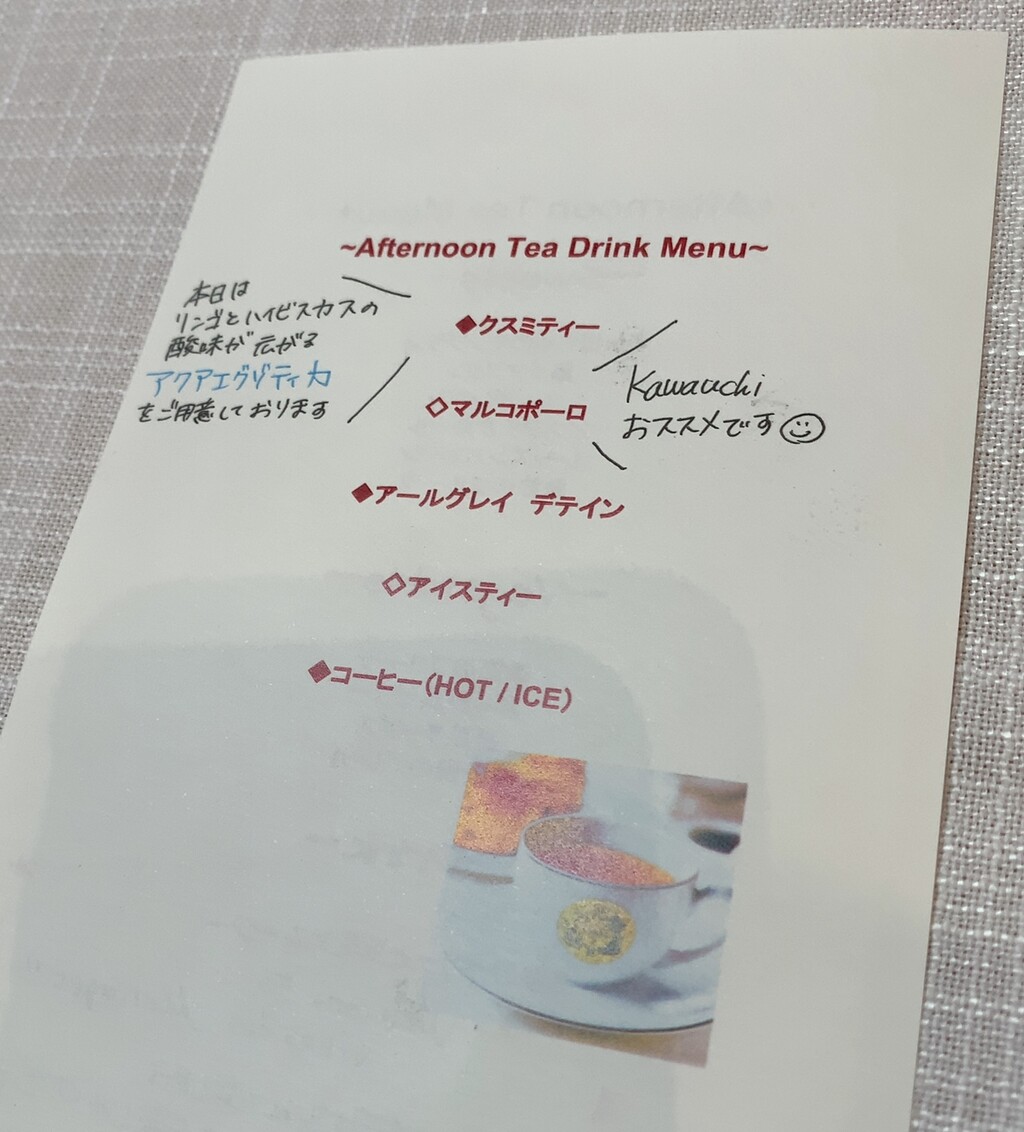 ~Afternoon Tea Drink Menu~
本日は
リンゴとハイビスカスの
酸味が広がる
アクアエグゾティカ
をご用意しております
◆クスミティー
Kawauchi
おススメです
◇マルコポーロ
◆アールグレイ デテイン
◇アイスティー
◆コーヒー(HOT / ICE)